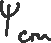 Ψcm